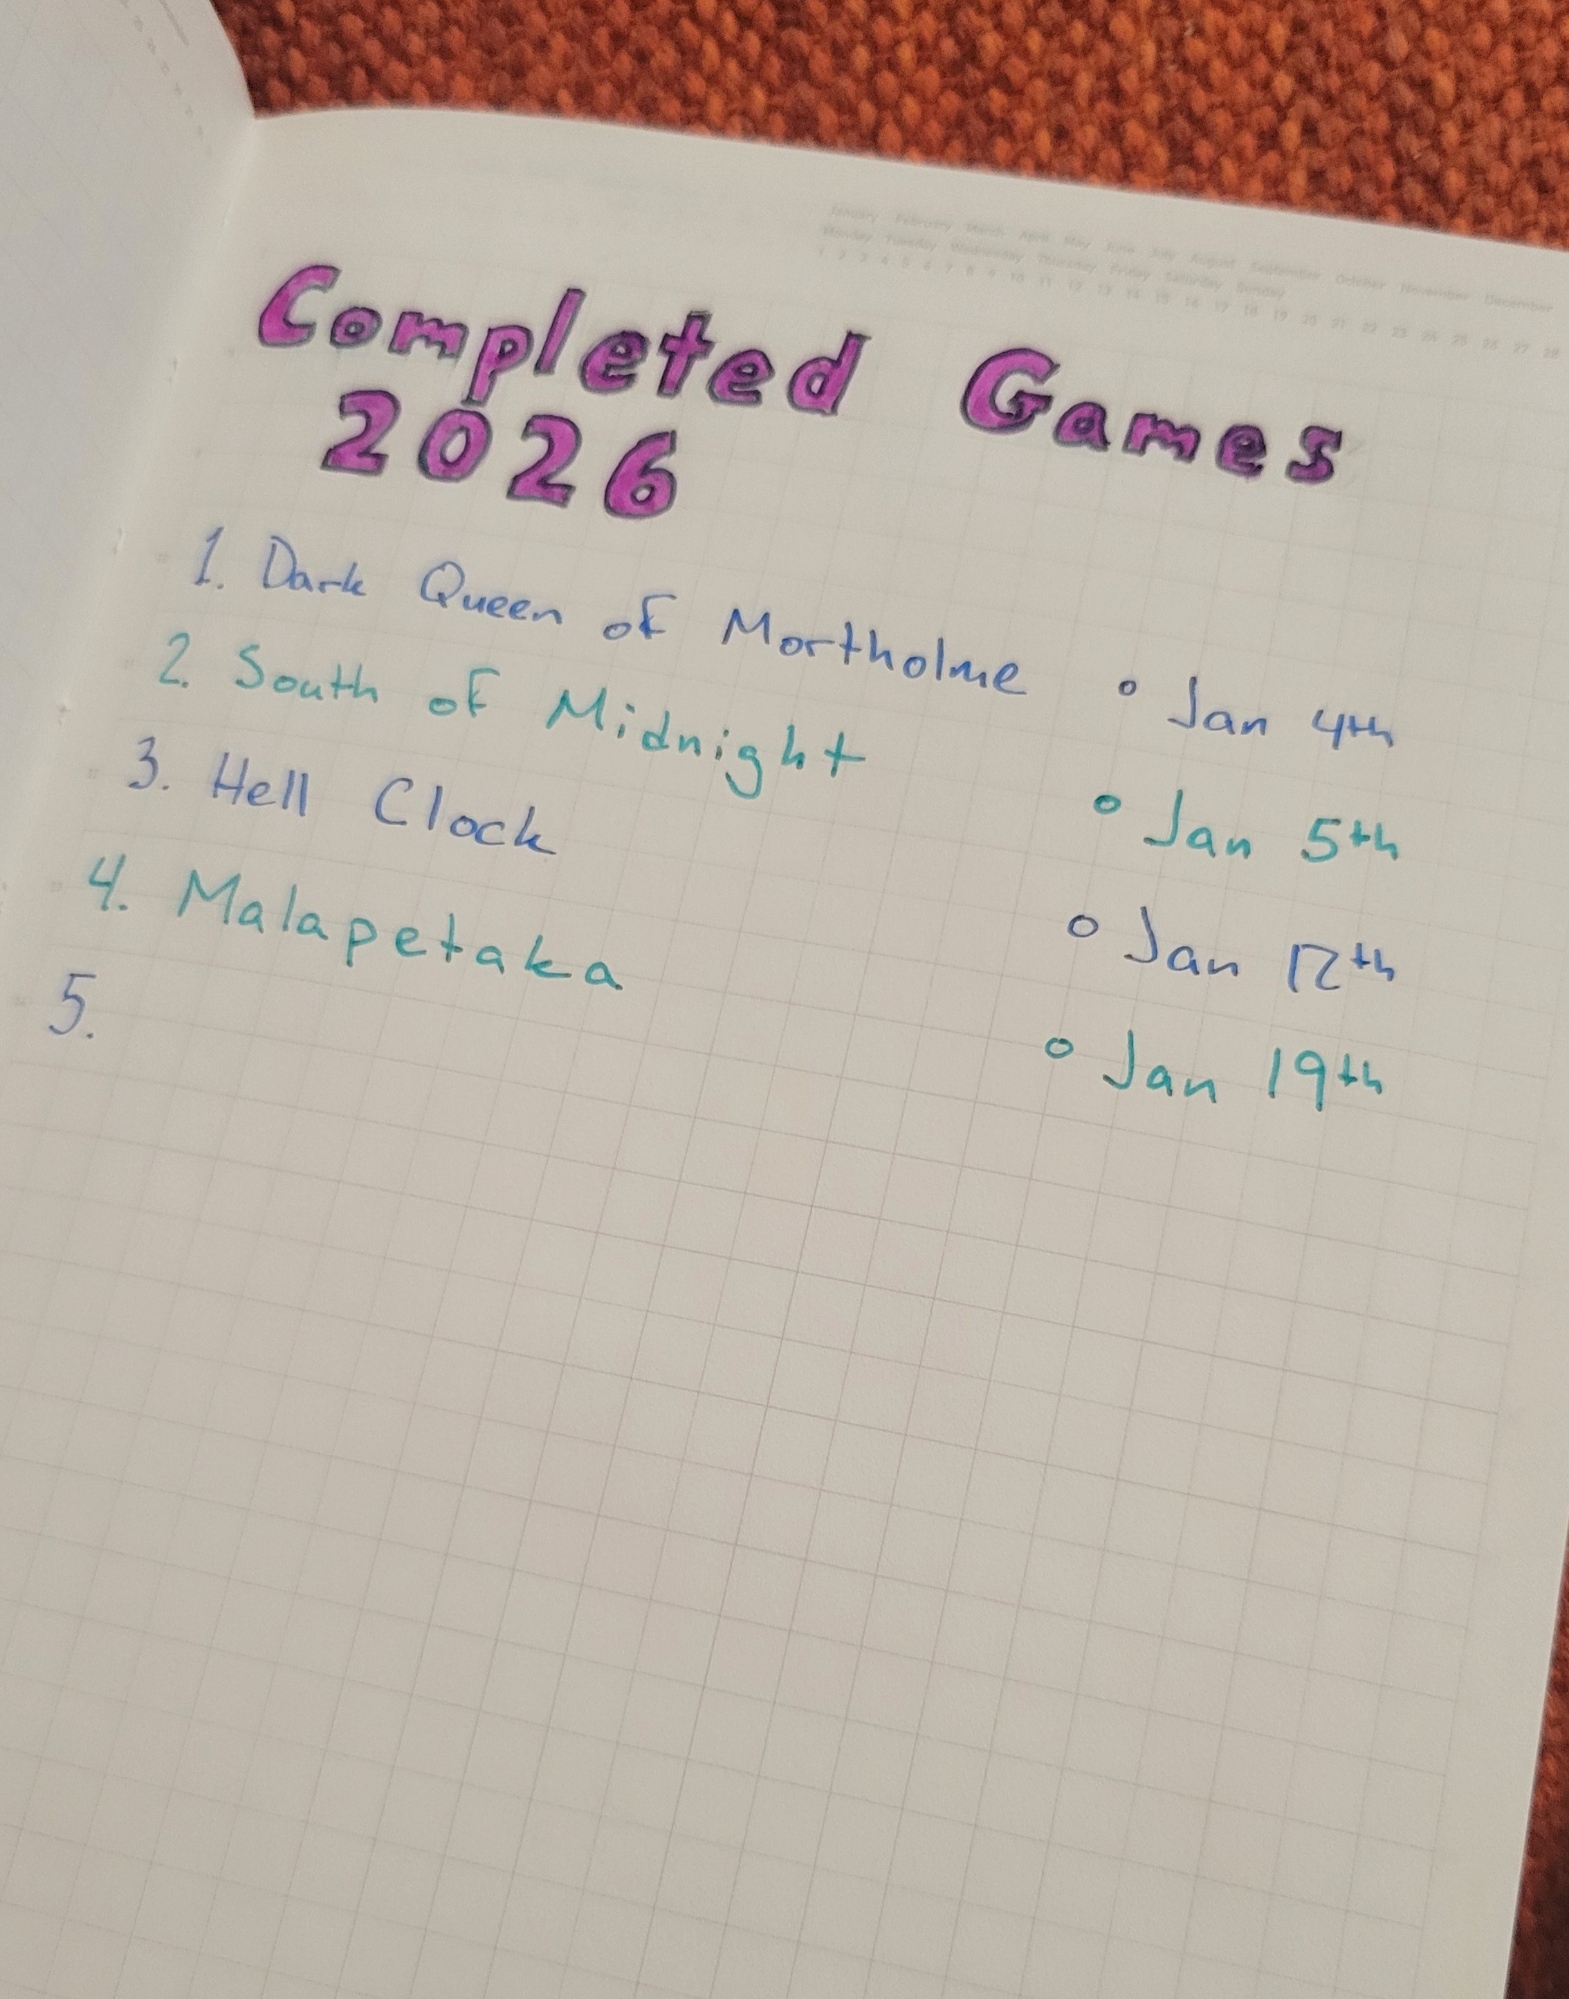 January February March April May June July August September October November December
Monday Tuesday Wednesday Thursday Friday Saturday Sunday
1 2 3 4 5 6 7 8 9 10 11 12 13 14 15 16 17 18 19 20 21 22 23 24 25 26 27 28
Completed Games
2026
1. Dark Queen of Mortholme ° Jan 4th
2. South of Midnight ° Jan 5th
3. Hell Clock ° Jan 12th
4. Malapetaka ° Jan 19th
5.